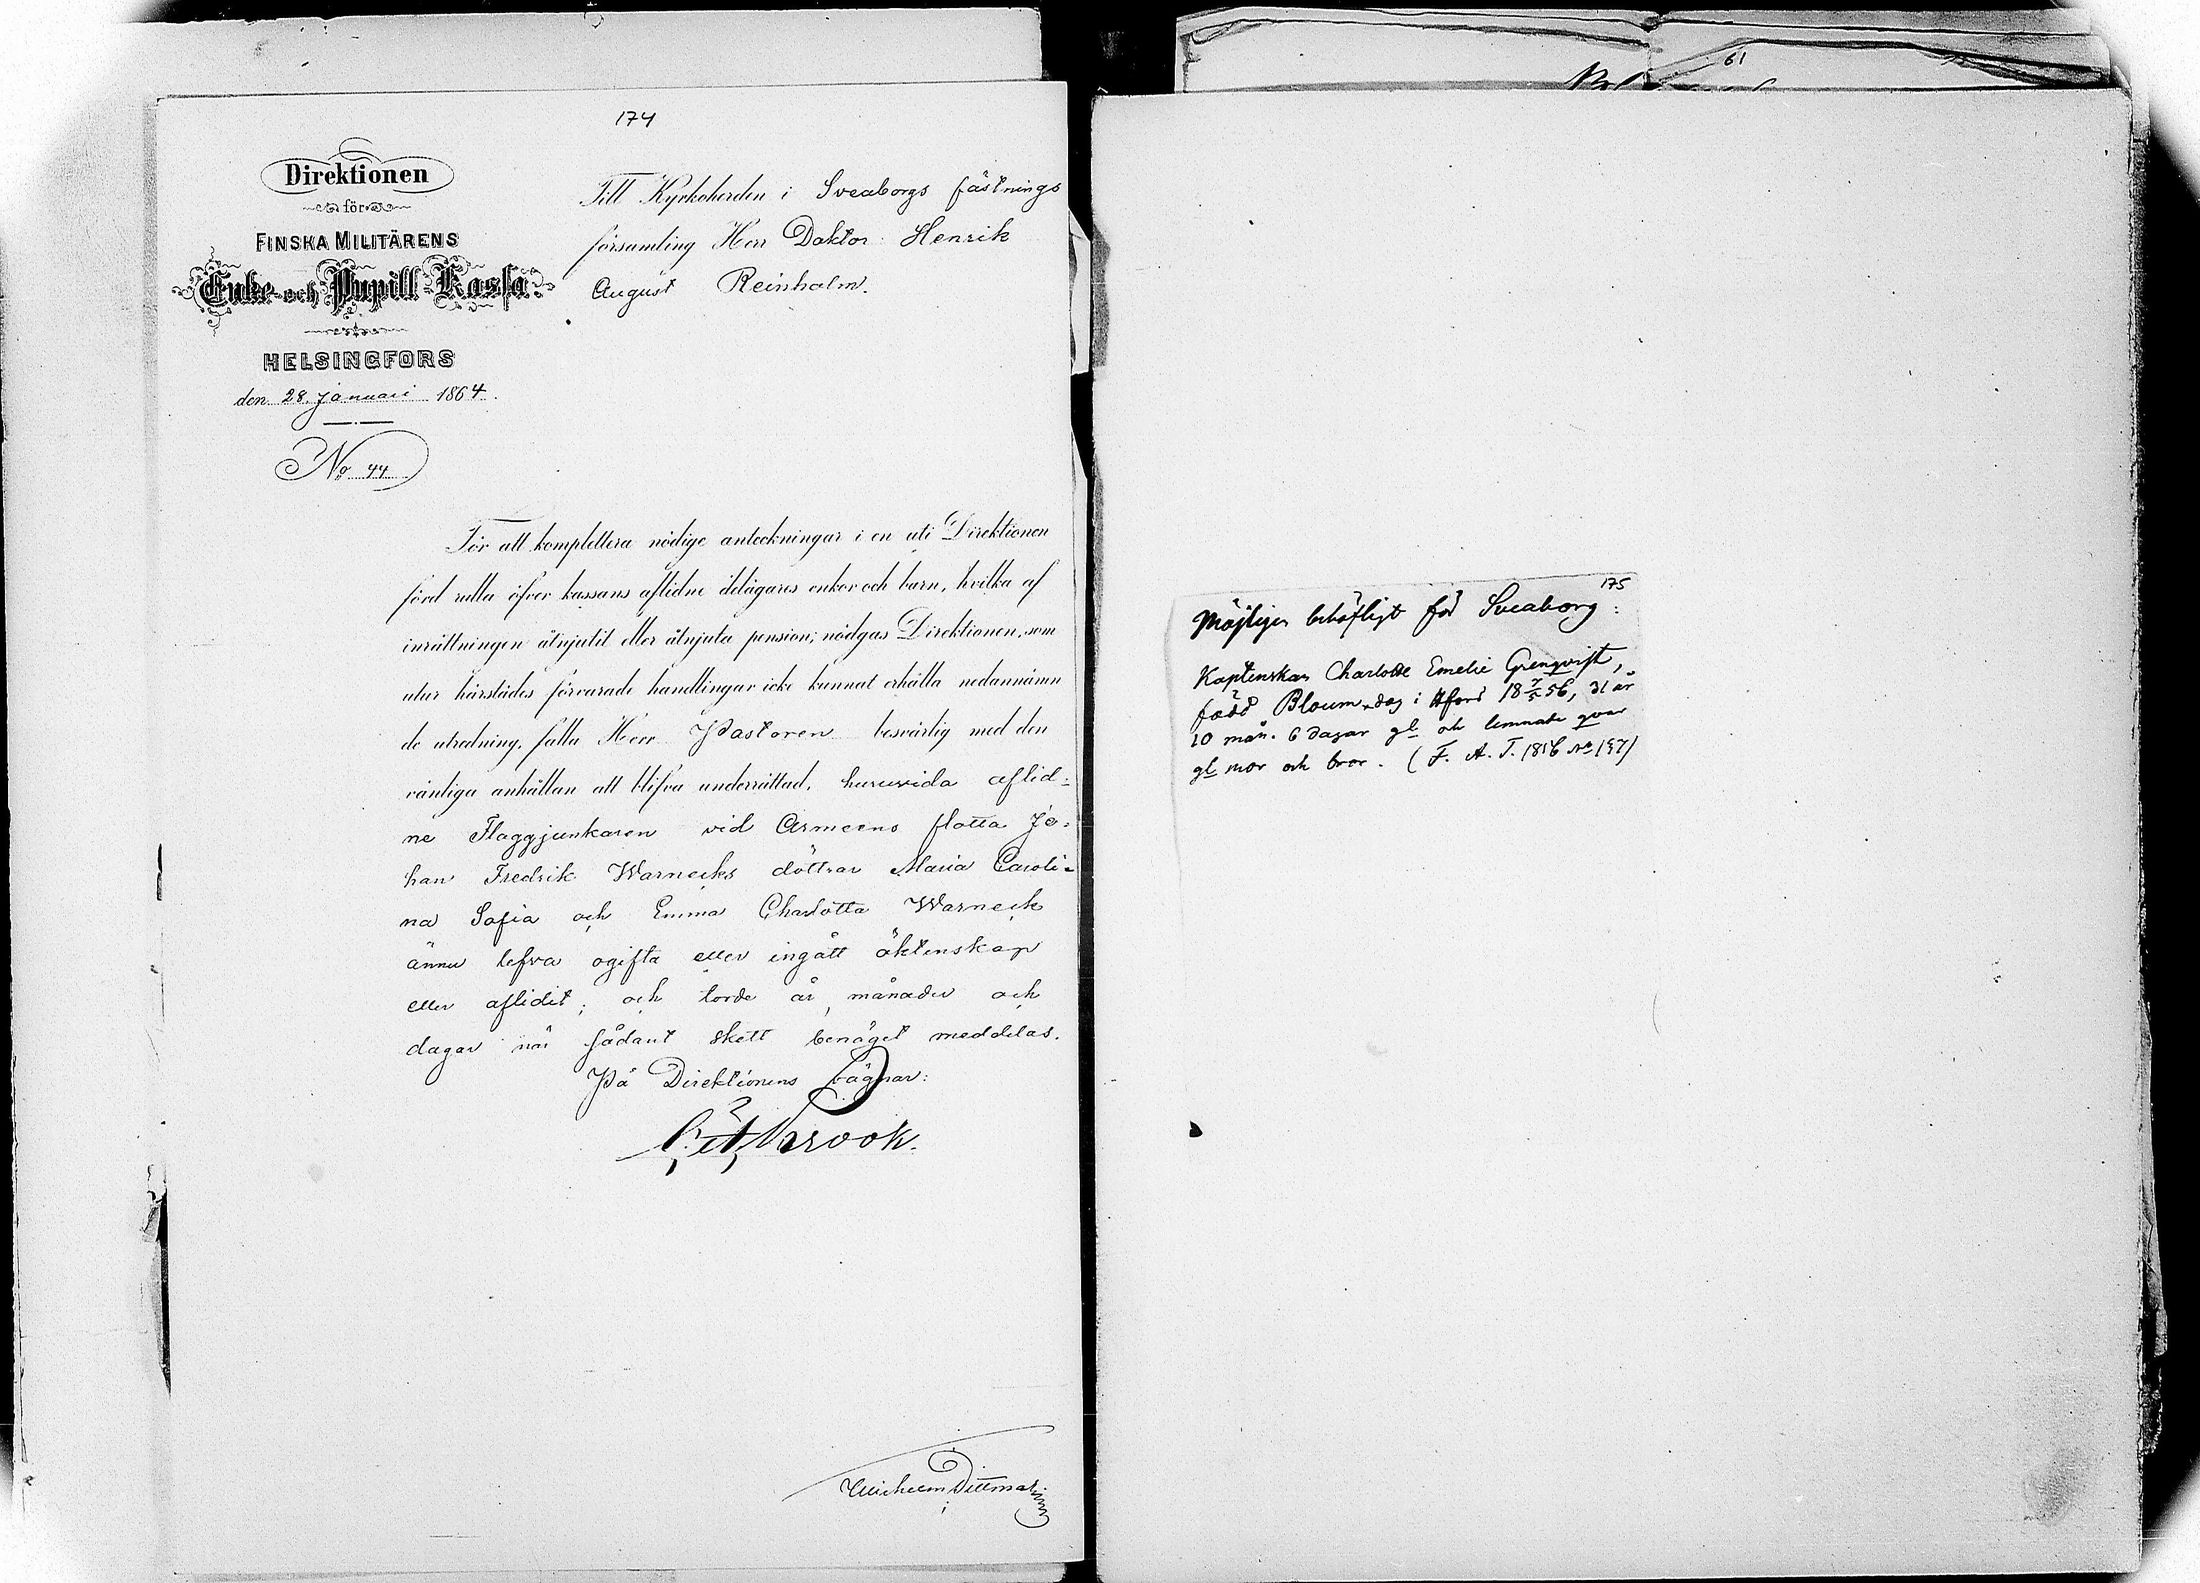 174
Direktionen
för
FINSKA MILITÄRENS
Enke- och Pupill-Kassa.
HELSINGFORS
den 28. januari 1864.
No 44
Till Kyrkoherden i Sveaborgs fästnings
församling Herr Doktor Henrik
August Reinholm.
För att komplettera nödige anteckningar i en uti Direktionen
förd rulla öfver kassans aflidne delägares enkor och barn, hvilka af
inrättningen åtnjutit eller åtnjuta pension; nödgas Direktionen, som
utur härstädes förvarade handlingar icke kunnat erhålla nedannämn
de utredning, falla Herr Pastoren besvärlig med den
vänliga anhållan att blifva underrättad, huruvida aflid-
ne Flaggjunkaren vid Armeens flotta Jo-
han Fredrik Warnecks döttrar Maria Caroli-
na Sofia och Emma Charlotta Warneck
ännu lefva ogifta eller ingått äktenskap
eller aflidit; och torde år, månader och
dagar när sådant skett benäget meddelas.
På Direktionens vägnar:
Wilhelm Dittmar
61
175
Möjligen behöfligt för Sveaborg:
Kaptenskan Charlotte Emelie Grenqvist,
född Bloum, dog i Hfors 18 7/5 56, 31 år
10 mån. 6 dagar gl och lemnade qvar
gl mor och bror. (F. A. T. 1856 No 197)